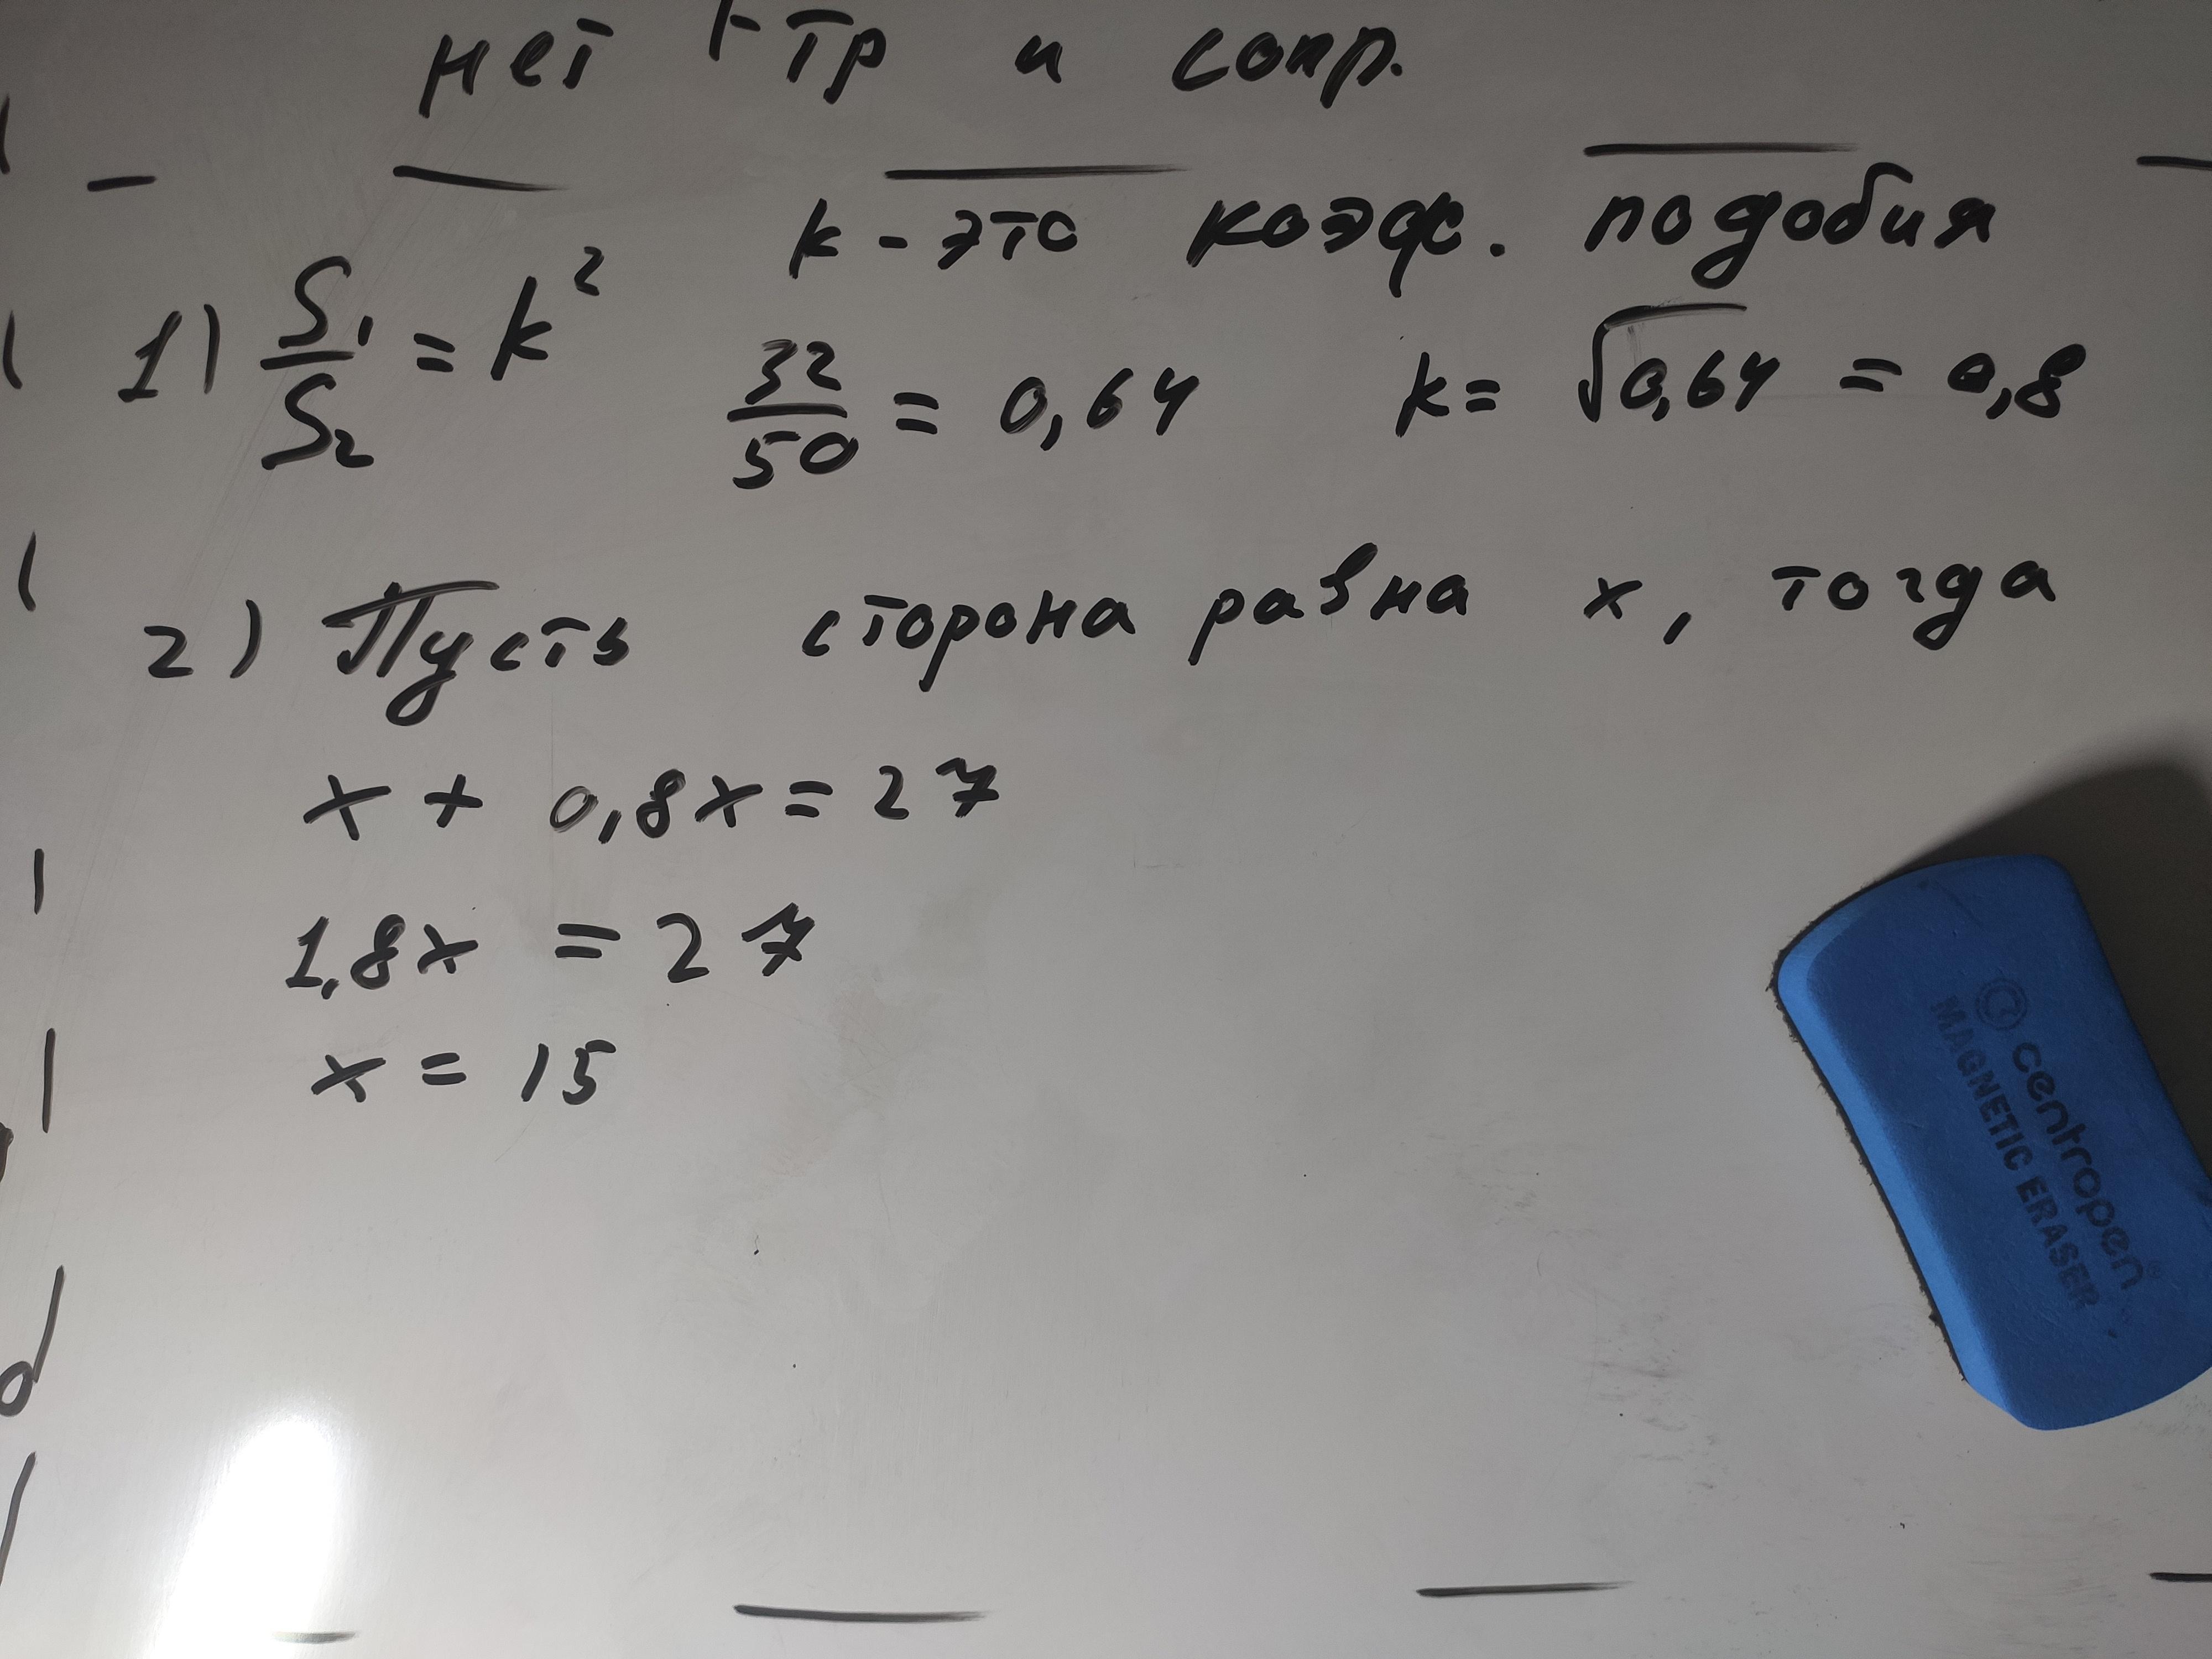 нет Fтр и сопр.
k - это коэф. подобия
1) S₁/S₂ = k² 32/50 = 0,64 k = √0,64 = 0,8
2) Пусть сторона равна x, тогда
x + 0,8x = 27
1,8x = 27
x = 15
centropen®
MAGNETIC ERASER